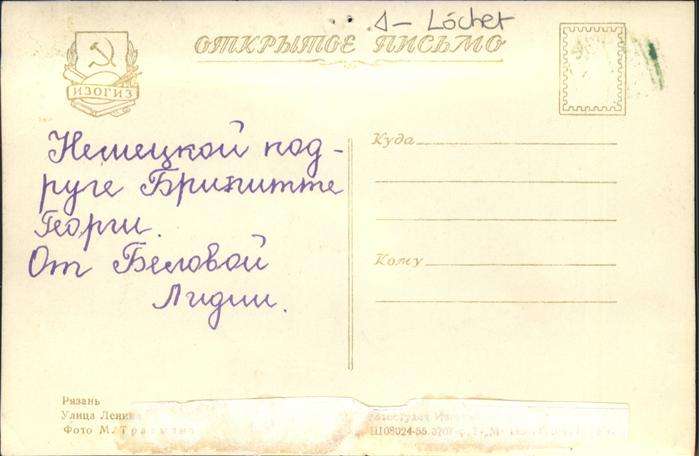 1- Löcher
ОТКРЫТОЕ ПИСЬМО
ИЗОГИЗ
Немецкой под-
руге Бригитте
Георги.
От Беловой
Лидии.
Куда
Кому
Рязань
Улица Ленина
Фото М.
Ш08024-55.